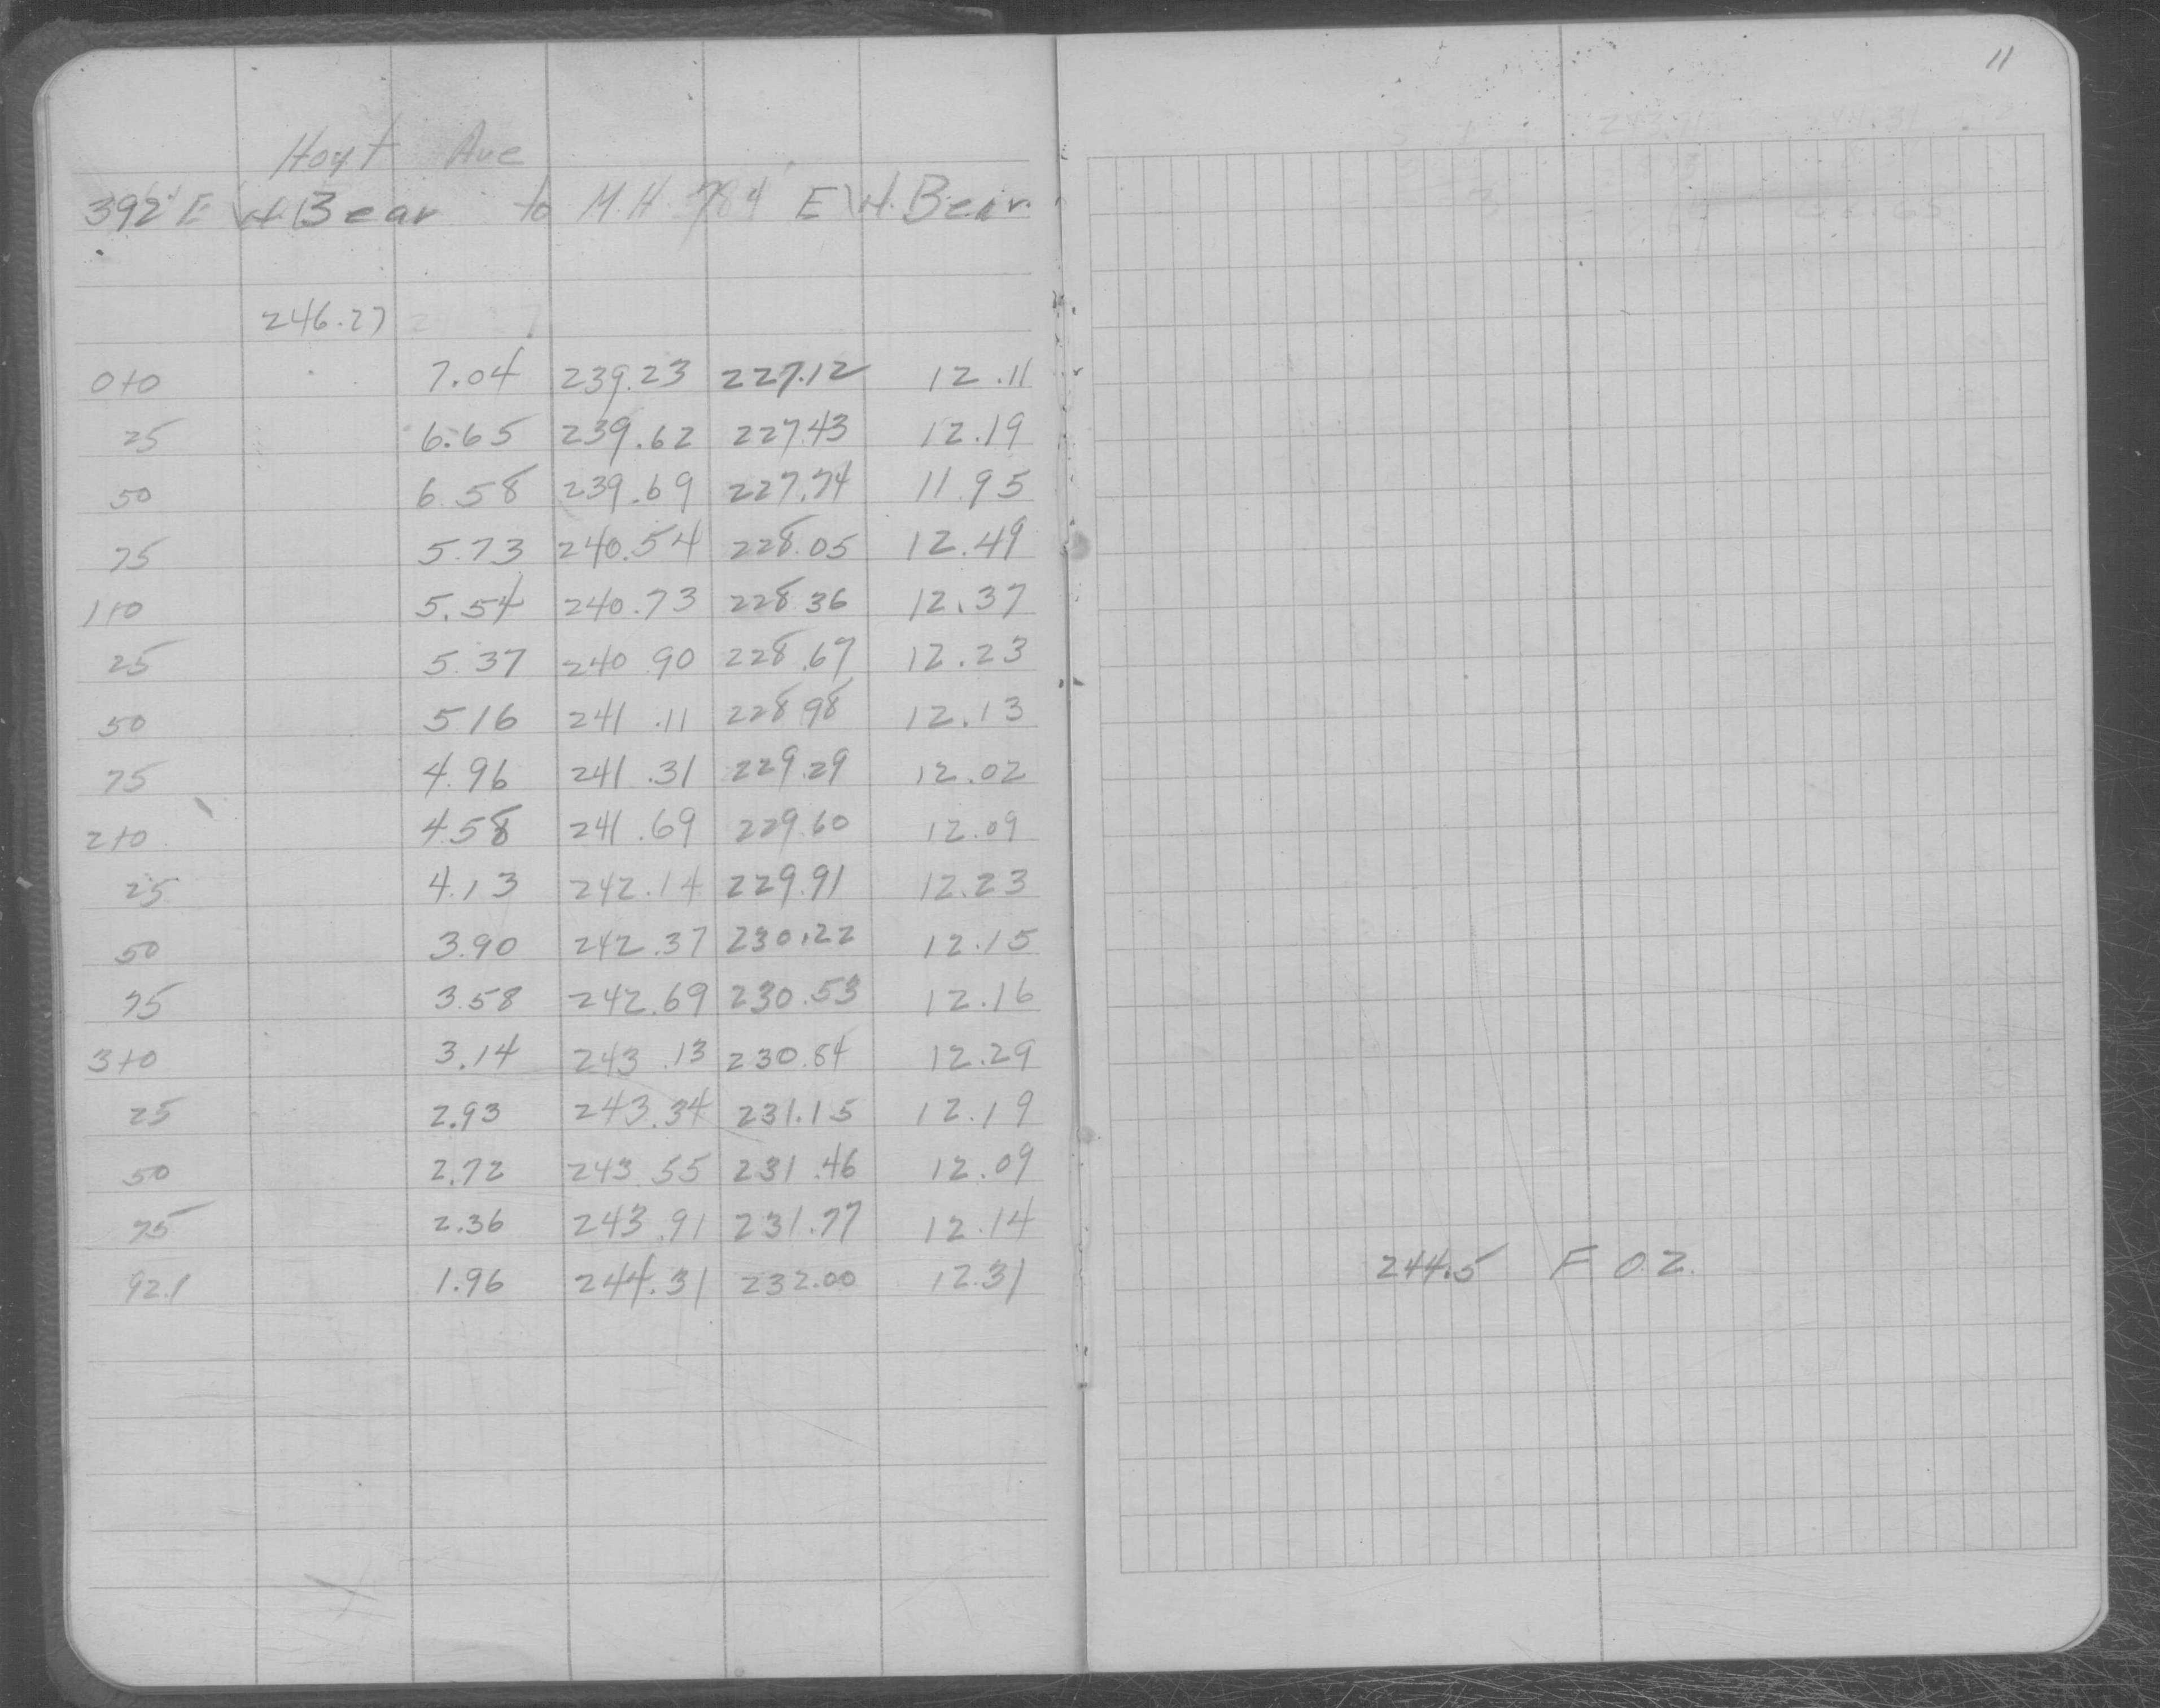 11
Hoyt Ave
392' E W. Bear to M.H. 784' E W. Bear.
246.27
0+0 7.04 239.23 227.12 12.11
25 6.65 239.62 227.43 12.19
50 6.58 239.69 227.74 11.95
75 5.73 240.54 228.05 12.49
1+0 5.54 240.73 228.36 12.37
25 5.37 240.90 228.67 12.23
50 5.16 241.11 228.98 12.13
75 4.96 241.31 229.29 12.02
2+0 4.58 241.69 229.60 12.09
25 4.13 242.14 229.91 12.23
50 3.90 242.37 230.22 12.15
75 3.58 242.69 230.53 12.16
3+0 3.14 243.13 230.84 12.29
25 2.93 243.34 231.15 12.19
50 2.72 243.55 231.46 12.09
75 2.36 243.91 231.77 12.14
92.1 1.96 244.31 232.00 12.31
244.5 F O.Z.